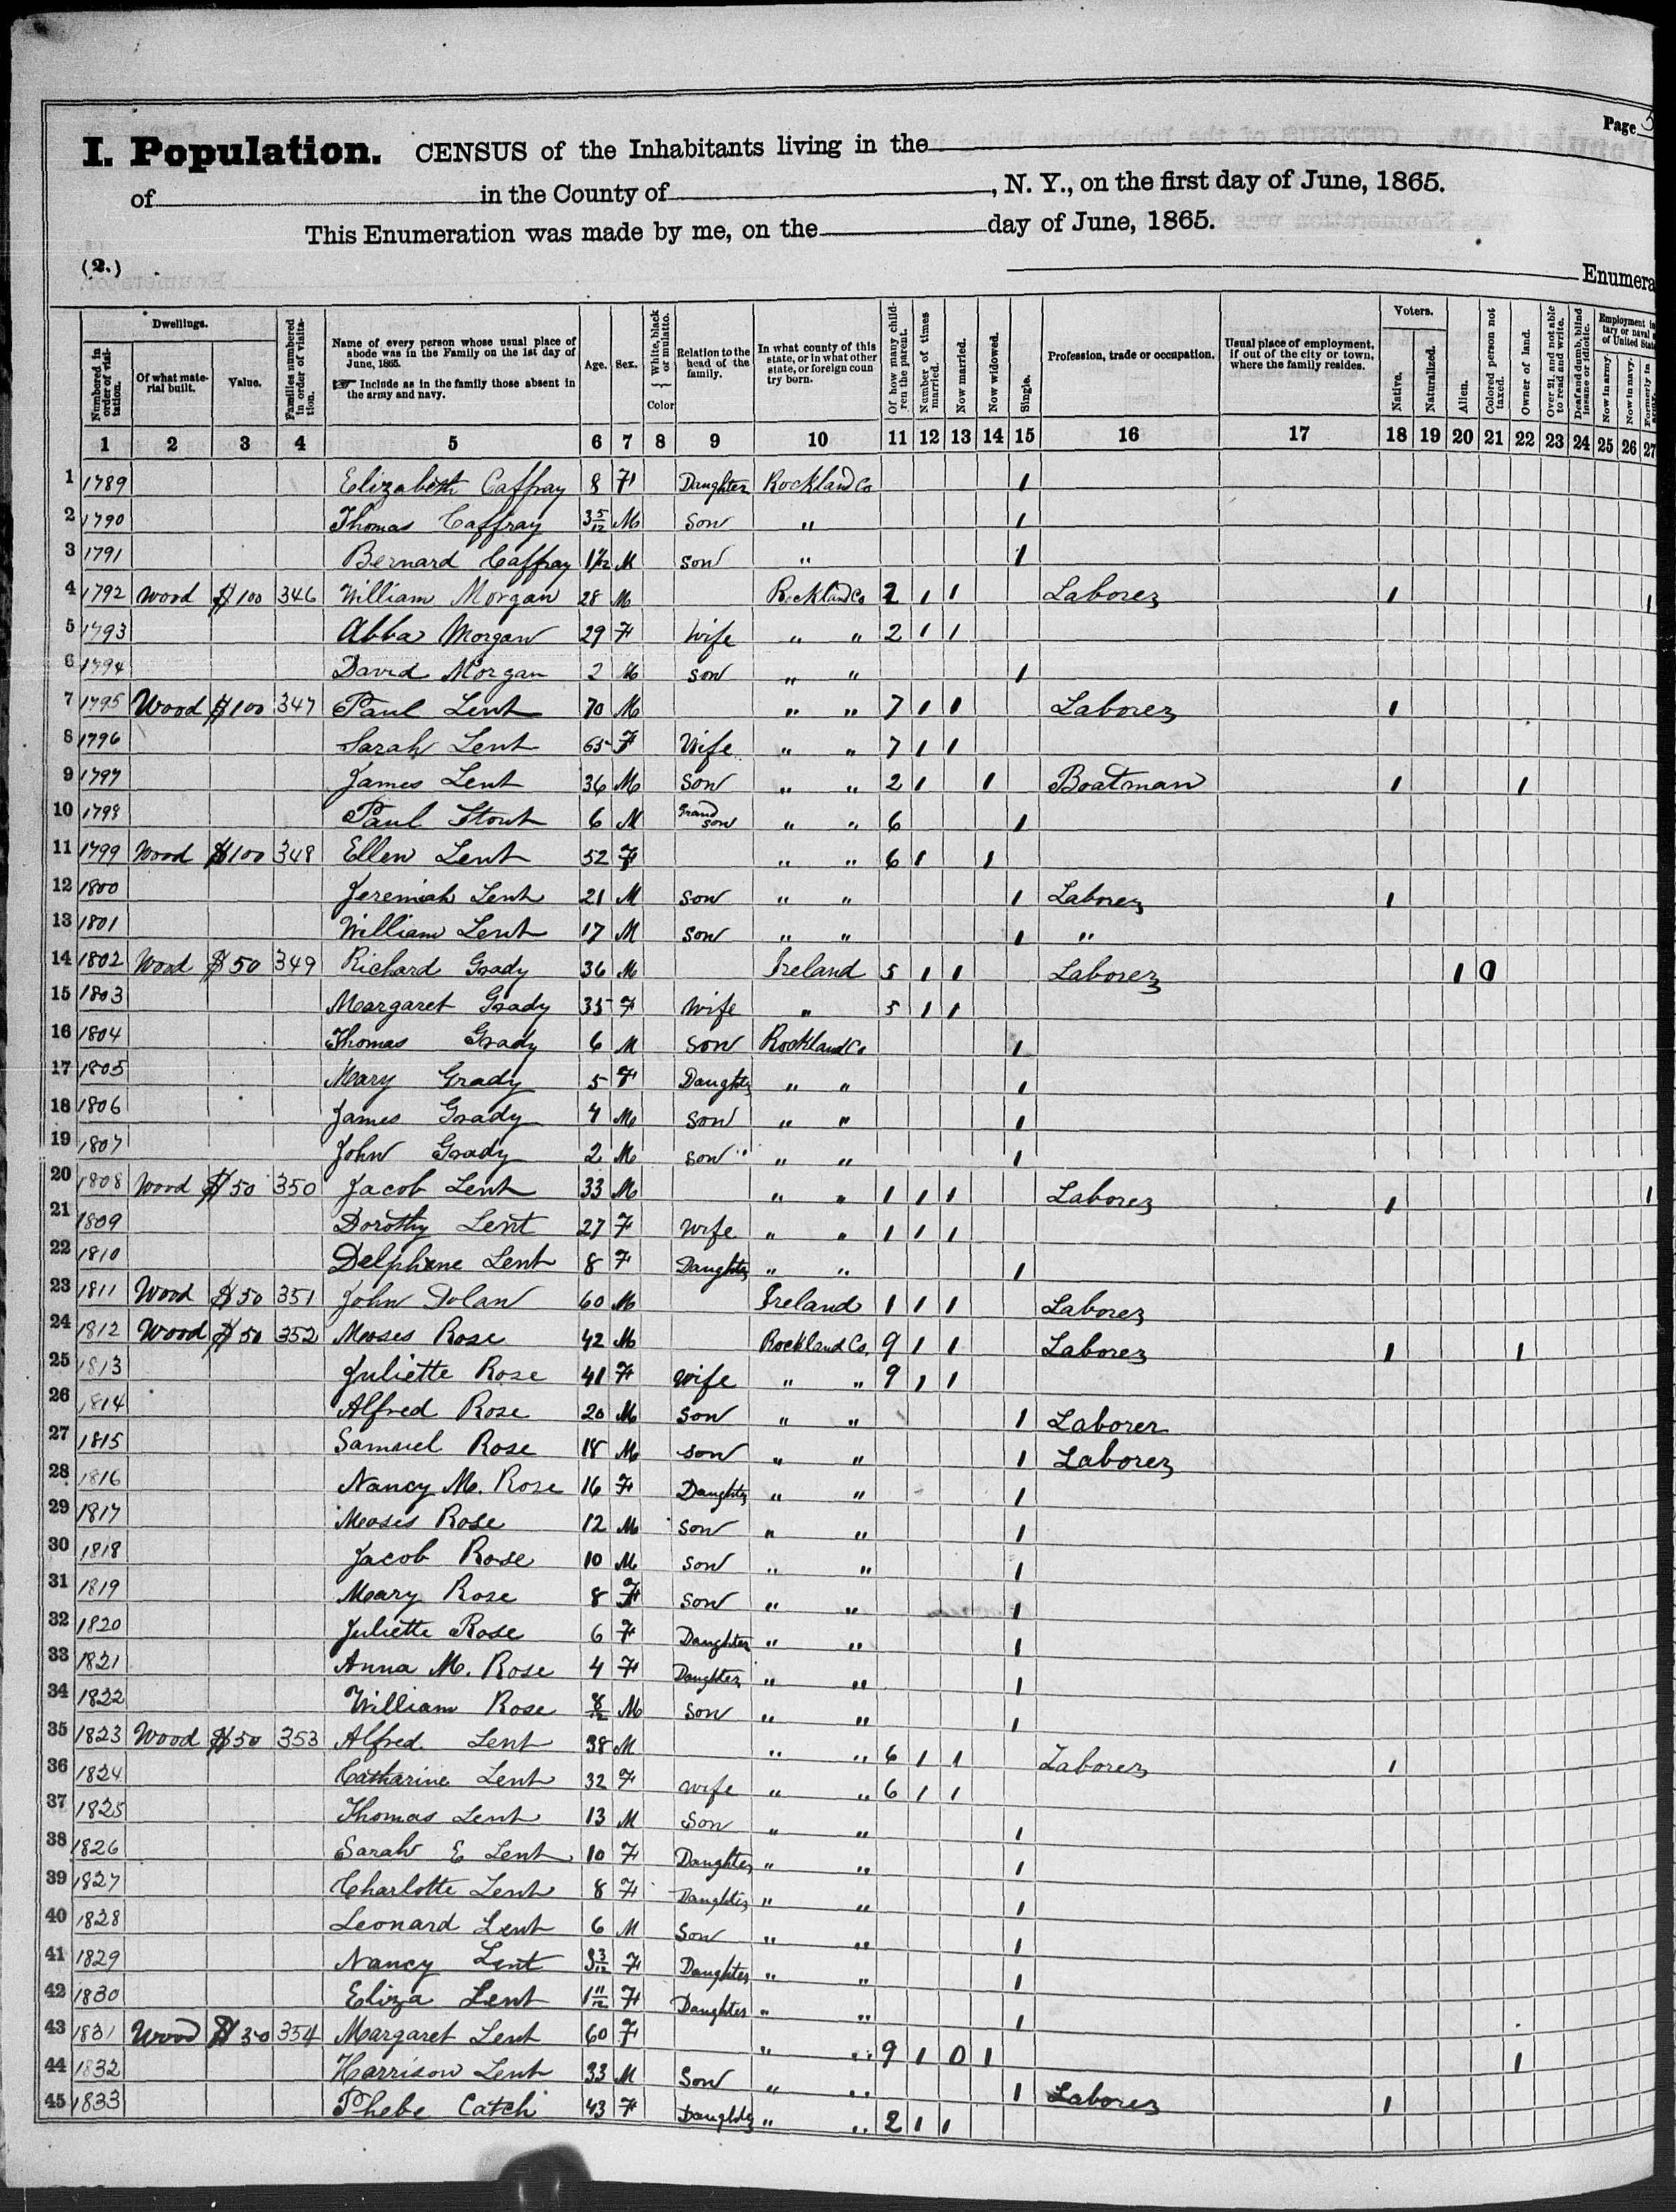 Page 5
I. Population. CENSUS of the Inhabitants living in the
of in the County of , N. Y., on the first day of June, 1865.
This Enumeration was made by me, on the day of June, 1865.
(2.)
Enumera
Dwellings. Voters. Employment in
Numbered in order of visitation. Of what material built. Value. Families numbered in order of visitation. Name of every person whose usual place of abode was in the Family on the 1st day of June, 1865. Include as in the family those absent in the army and navy. Age. Sex. White, black or mulatto. Color Relation to the head of the family. In what county of this state, or in what other state, or foreign coun try born. Of how many children the parent. Number of times married. Now married. Now widowed. Single. Profession, trade or occupation. Usual place of employment, if out of the city or town, where the family resides. Native. Naturalized. Alien. Colored person not taxed. Owner of land. Over 21, and not able to read and write. Deaf and dumb, blind insane or idiotic. tary or naval of United Stat Now in army. Now in navy. Formerly in army.
1 2 3 4 5 6 7 8 9 10 11 12 13 14 15 16 17 18 19 20 21 22 23 24 25 26 27
1 1789 Elizabeth Caffray 8 F Daughter Rockland Co 1
2 1790 Thomas Caffray 3 5/12 M Son " 1
3 1791 Bernard Caffray M son " 1
4 1792 Wood $100 346 William Morgan 28 M Rockland Co 2 1 1 Laborer 1 1
5 1793 Abba Morgan 29 F Wife " " 2 1 1
6 1794 David Morgan 2 M son " " 1
7 1795 Wood $100 347 Paul Lent 70 M " " 7 1 1 Laborer 1
8 1796 Sarah Lent 65 F Wife " " 7 1 1
9 1797 James Lent 36 M Son " " 2 1 1 Boatman 1 1
10 1798 Paul Stout 6 M Grand son " " 6 1
11 1799 Wood $100 348 Ellen Lent 52 F " " 6 1 1
12 1800 Jeremiah Lent 21 M Son " " 1 Laborer 1
13 1801 William Lent 17 M Son " " 1 "
14 1802 Wood $50 349 Richard Grady 36 M Ireland 5 1 1 Laborer 1 0
15 1803 Margaret Grady 35 F Wife " 5 1 1
16 1804 Thomas Grady 6 M Son Rockland Co 1
17 1805 Mary Grady 5 F Daughter " " 1
18 1806 James Grady 4 M Son " " 1
19 1807 John Grady 2 M son " " 1
20 1808 Wood $50 350 Jacob Lent 33 M " " 1 1 1 Laborer 1 1
21 1809 Dorothy Lent 27 F Wife " " 1 1 1
22 1810 Delphine Lent 8 F Daughter " " 1
23 1811 Wood $50 351 John Dolan 60 M Ireland 1 1 1 Laborer
24 1812 Wood $50 352 Moses Rose 42 M Rockland Co. 9 1 1 Laborer 1 1
25 1813 Juliette Rose 41 F Wife " " 9 1 1
26 1814 Alfred Rose 20 M Son " " 1 Laborer
27 1815 Samuel Rose 18 M Son " " 1 Laborer
28 1816 Nancy M. Rose 16 F Daughter " " 1
29 1817 Moses Rose 12 M Son " " 1
30 1818 Jacob Rose 10 M Son " " 1
31 1819 Mary Rose 8 F Son " " 1
32 1820 Juliette Rose 6 F Daughter " " 1
33 1821 Anna M. Rose 4 F Daughter " " 1
34 1822 William Rose 8/12 M Son " " 1
35 1823 Wood $50 353 Alfred Lent 38 M " " 6 1 1 Laborer 1
36 1824 Catharine Lent 32 F Wife " " 6 1 1
37 1825 Thomas Lent 13 M Son " " 1
38 1826 Sarah E Lent 10 F Daughter " " 1
39 1827 Charlotte Lent 8 F Daughter " " 1
40 1828 Leonard Lent 6 M Son " " 1
41 1829 Nancy Lent 3 3/12 F Daughter " " 1
42 1830 Eliza Lent 1 11/12 F Daughter " " 1
43 1831 Wood $30 354 Margaret Lent 60 F " " 9 1 0 1 1
44 1832 Harrison Lent 33 M Son " " 1 Laborer 1
45 1833 Phebe Catch 43 F Daughter " " 2 1 1